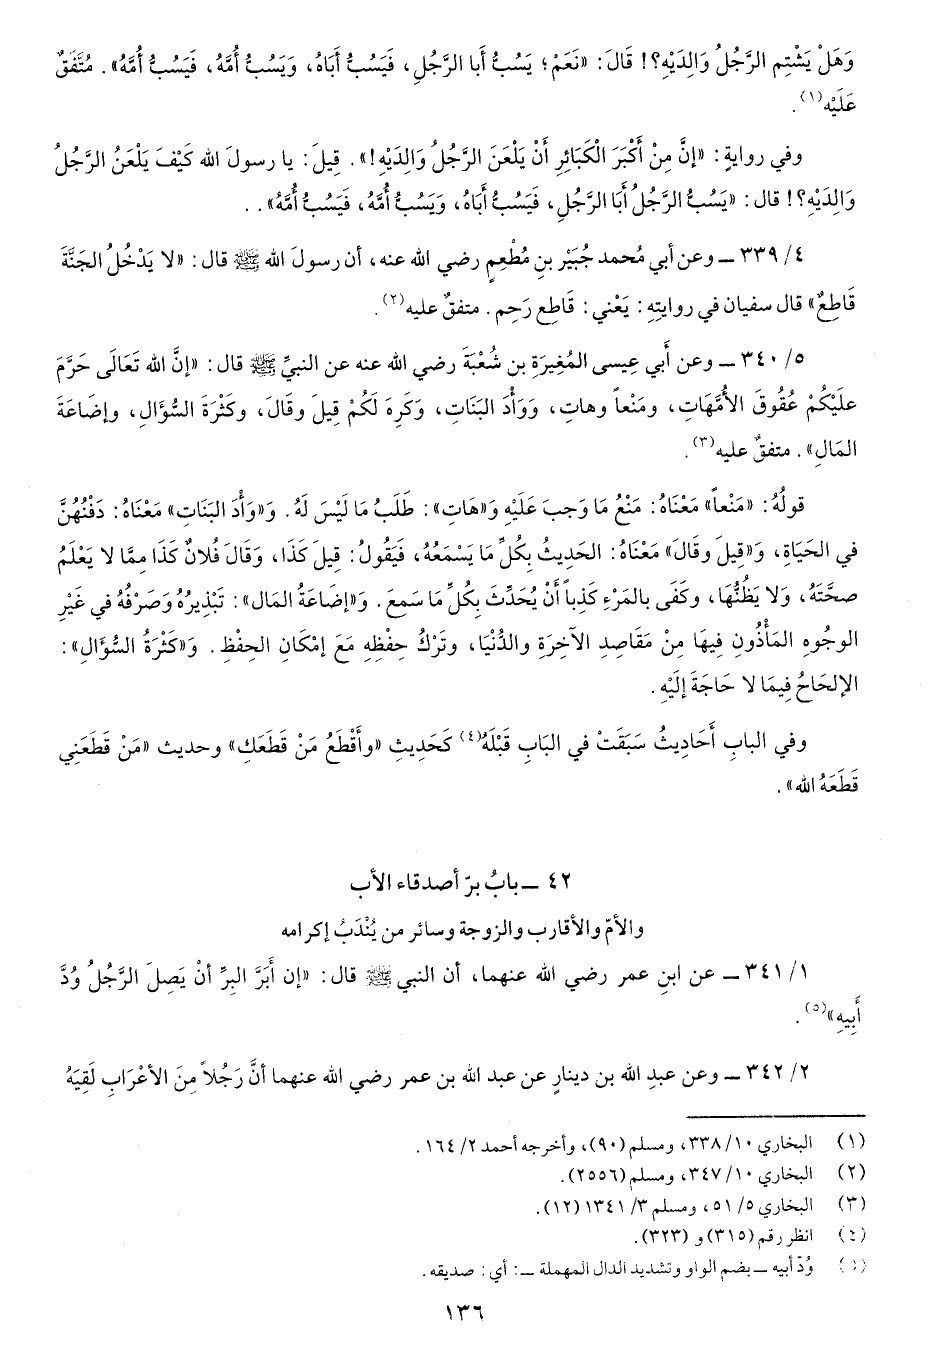 وَهَلْ يَشْتِم الرَّجُلُ وَالِدَيْهِ؟! قَالَ: «نَعَمْ؛ يَسُبُّ أَبا الرَّجُلِ، فَيَسُبُّ أَبَاهُ، وَيَسُبُّ أُمَّهُ، فَيَسُبُّ أُمَّهُ». مُتَّفَقٌ
عَلَيْه(١).
وفي روايةٍ: «إنَّ مِنْ أَكْبَرِ الْكَبَائِرِ أَنْ يَلْعَنَ الرَّجُلُ وَالِدَيْهِ!». قِيلَ: يا رسولَ الله كَيْفَ يَلْعَنُ الرَّجُلُ
وَالِدَيْهِ؟! قال: «يَسُبُّ الرَّجُلُ أَبَا الرَّجُلِ، فَيَسُبُّ أَبَاهُ، وَيَسُبُّ أُمَّهُ، فَيَسُبُّ أُمَّهُ»..
٤/ ٣٣٩ ــ وعن أبي مُحمد جُبَيْرِ بنِ مُطْعِمٍ رضي الله عنه، أن رسولَ الله ﷺ قال: «لا يَدْخُلُ الجَنَّةَ
قَاطِعٌ» قال سفيان في روايتِهِ: يَعْني: قَاطِع رَحِم. متفقٌ عليه(٢).
٥/ ٣٤٠ ــ وعن أَبي عِيسى المُغِيرَةِ بنِ شُعْبَةَ رضي الله عنه عن النبيِّ ﷺ قال: «إنَّ الله تَعَالَى حَرَّمَ
عَلَيْكُمْ عُقُوقَ الأُمَّهَاتِ، ومَنْعاً وهاتِ، وَوَأْدَ البَنَاتِ، وَكَرِهَ لَكُمْ قِيلَ وقَالَ، وكَثْرَةَ السُّؤَالِ، وإضَاعَةَ
المَالِ». متفقٌ عليه(٣).
قولُهُ: «مَنْعاً» مَعْنَاهُ: مَنْعُ مَا وَجبَ عَلَيْهِ وَ«هَاتِ»: طَلَبُ مَا لَيْسَ لَهُ. وَ«وَأْدَ البَنَاتِ» مَعْنَاهُ: دَفْنُهُنَّ
في الحَيَاةِ، وَ«قِيلَ وقَالَ» مَعْنَاهُ: الحَديثُ بِكُلِّ مَا يَسْمَعُهُ، فَيَقُولُ: قِيلَ كَذَا، وَقَالَ فُلانٌ كَذَا مِمَّا لا يَعْلَمُ
صِحَّتَهُ، وَلا يَظُنُّهَا، وكَفَى بالمَرْءِ كَذِباً أَنْ يُحَدِّثَ بِكُلِّ مَا سَمعَ. وَ«إضَاعَةُ المَال»: تَبْذِيرُهُ وَصَرْفُهُ في غَيْرِ
الوجُوهِ المَأْذُونِ فِيهَا مِنْ مَقَاصِدِ الآخِرَةِ والدُّنْيَا، وتَرْكُ حِفْظِهِ مَعَ إمْكَانِ الحِفْظِ. وَ«كَثْرَةُ السُّؤَالِ»:
الإلحَاحُ فِيمَا لا حَاجَةَ إلَيْهِ.
وفي البابِ أَحَادِيثُ سَبَقَتْ في البَابِ قَبْلَهُ(٤) كَحَدِيثِ «وأَقْطَعُ مَنْ قَطَعَكِ» وحديث «مَنْ قَطَعَنِي
قَطَعَهُ الله».
٤٢ ــ بابُ برّ أصدقاء الأب
والأمّ والأقارب والزوجة وسائر من يُنْدَبُ إكرامه
١/ ٣٤١ ــ عن ابنِ عمر رضي الله عنهما، أن النبي ﷺ قال: «إن أَبَرَّ البِرِّ أنْ يَصِلَ الرَّجُلُ وُدَّ
أَبِيهِ»(٥).
٢/ ٣٤٢ ــ وعن عبدِ الله بن دينارٍ عن عبد الله بن عمر رضي الله عنهما أنَّ رَجُلاً مِنَ الأعْرَابِ لَقِيَهُ
(١) البخاري ١٠/ ٣٣٨، ومسلم (٩٠)، وأخرجه أحمد ٢/ ١٦٤.
(٢) البخاري ١٠/ ٣٤٧، ومسلم (٢٥٥٦).
(٣) البخاري ٥/ ٥١، ومسلم ٣/ ١٣٤١ (١٢).
(٤) انظر رقم (٣١٥) و (٣٢٣).
(٥) وُدّ أبيه ــ بضم الواو وتشديد الدال المهملة ــ: أي: صديقه.
١٣٦